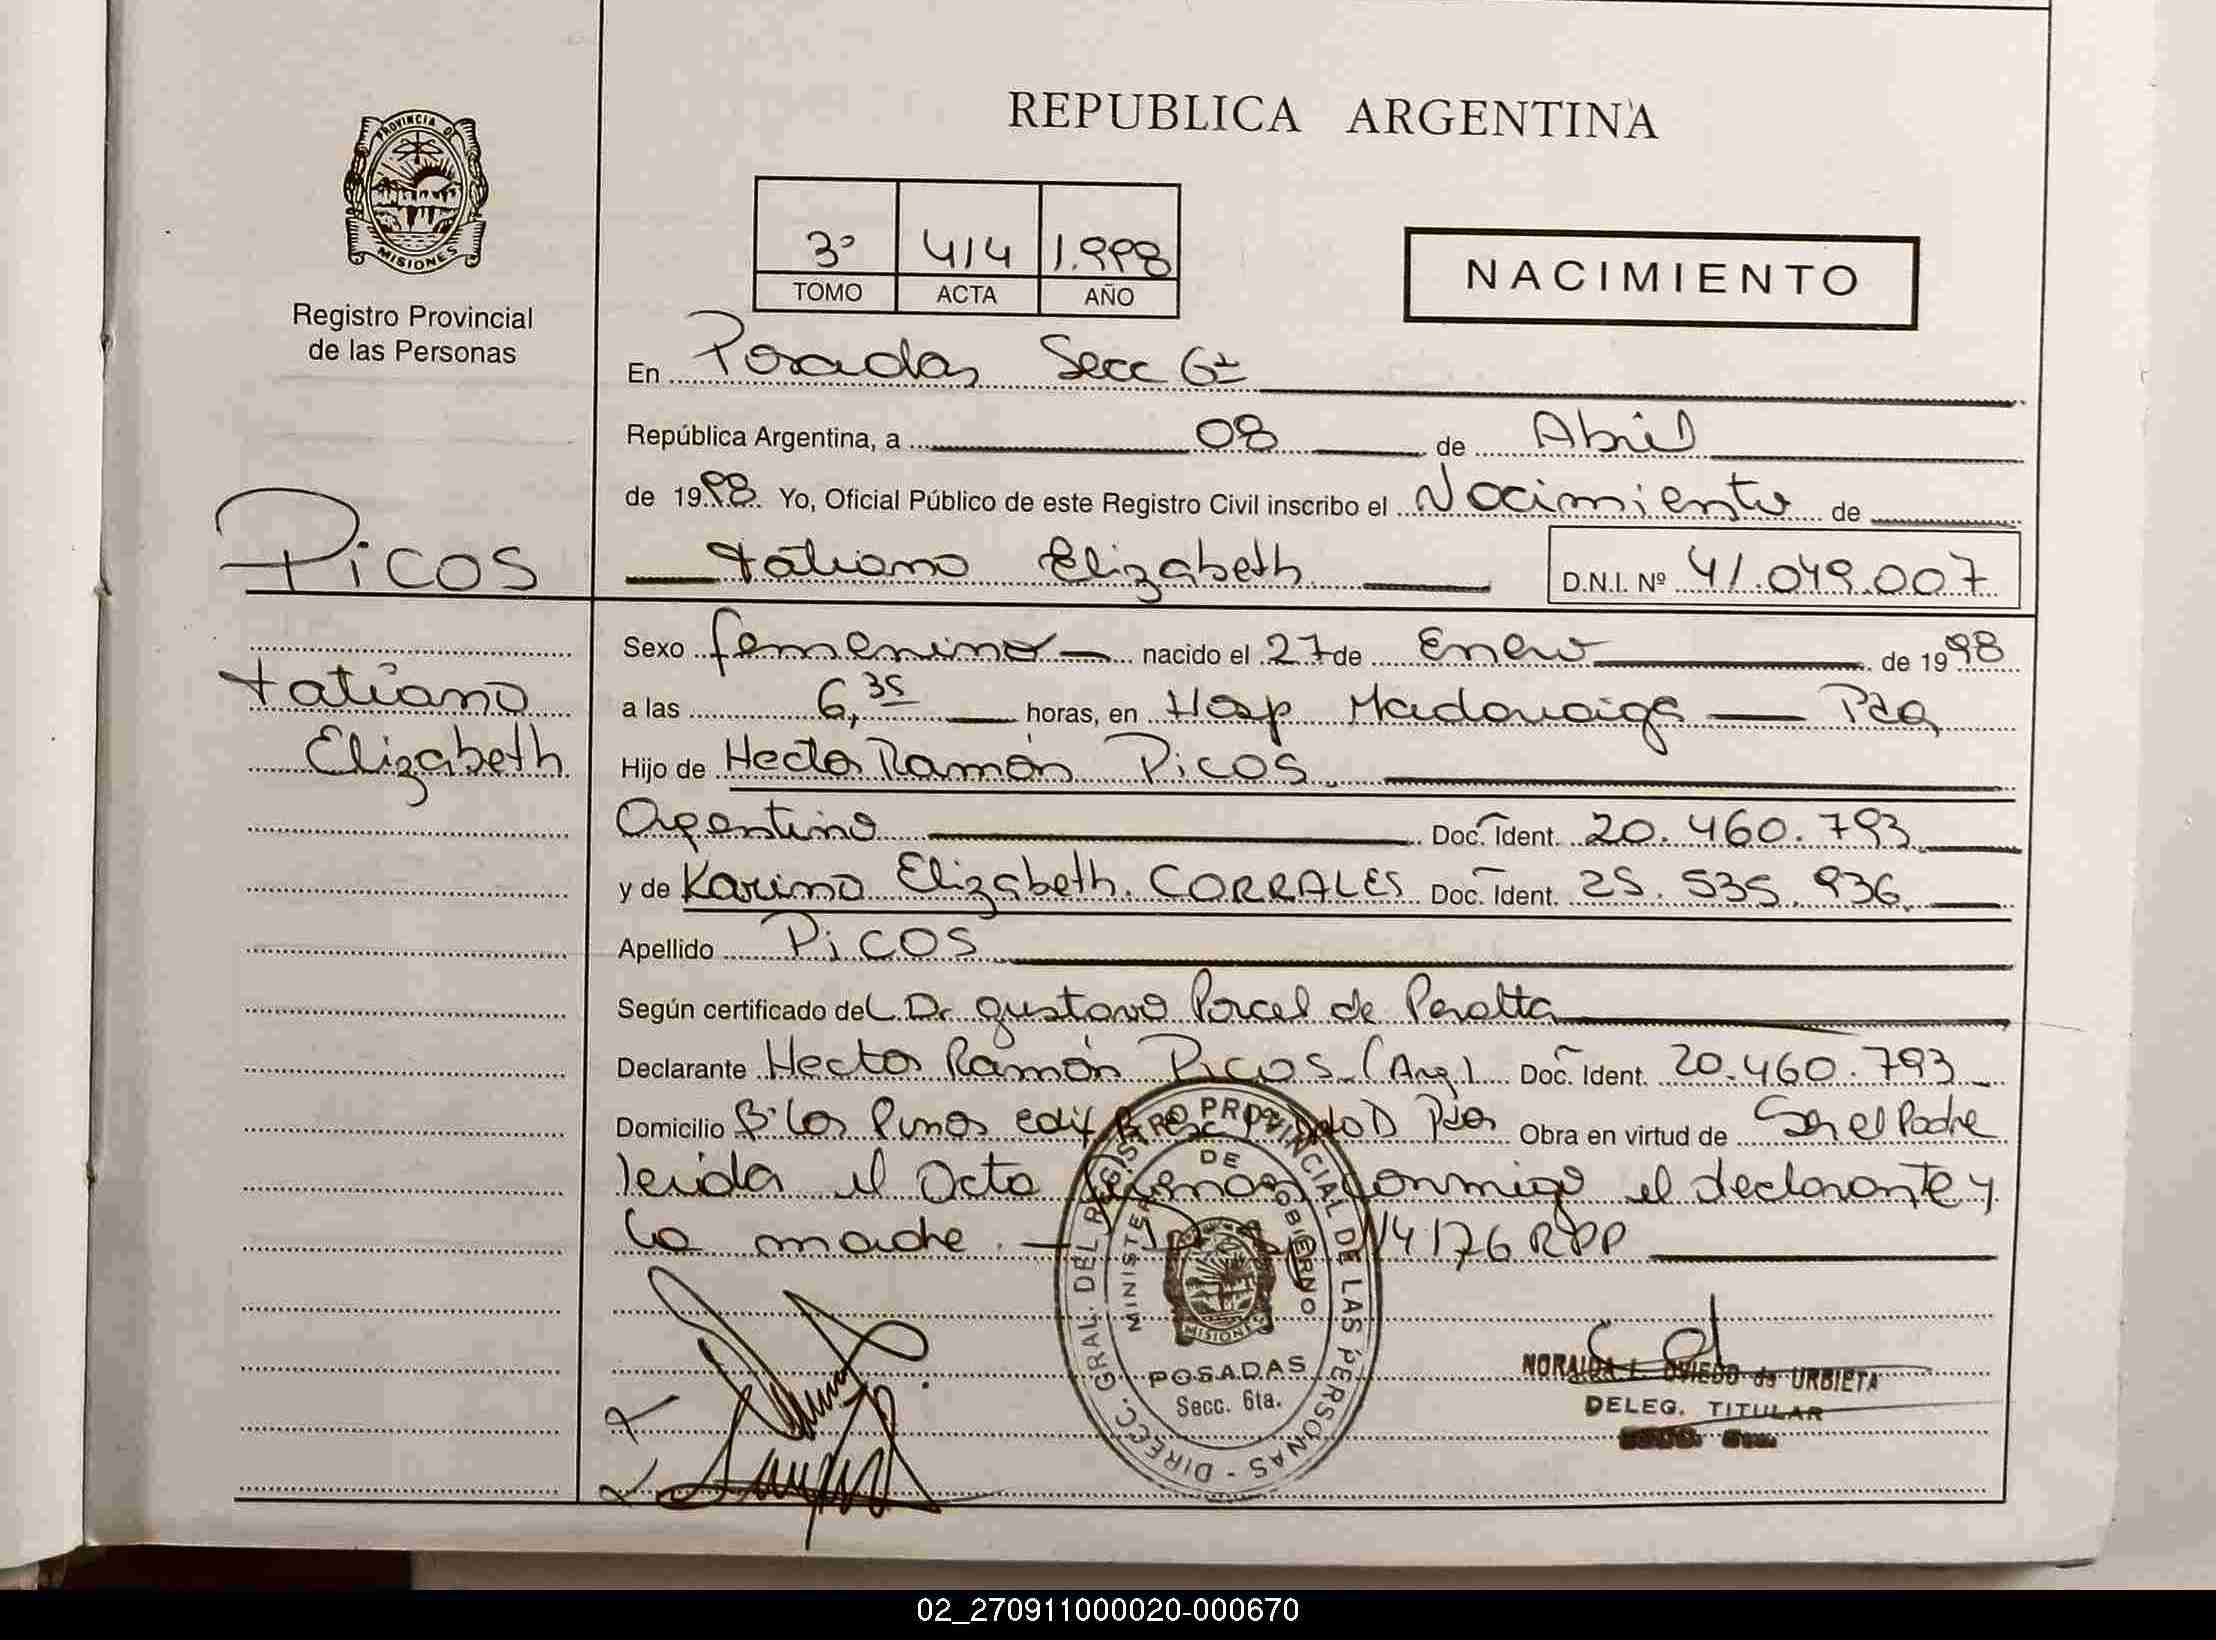 REPUBLICA ARGENTINA
PROVINCIA DE
MISIONES
Registro Provincial
de las Personas
3º 414 1.998
TOMO ACTA AÑO
NACIMIENTO
En Posadas Secc 6ª
República Argentina, a 08 de Abril
de 1998 Yo, Oficial Público de este Registro Civil inscribo el Nacimiento de
Picos
Tatiana Elizabeth D.N.I. Nº 41.049.007
Sexo femenino nacido el 27 de Enero de 1998
Tatiana
a las 6,35 horas, en Hosp Madariaga Pdas
Elizabeth
Hijo de Hector Ramón Picos
Argentino Doc. Ident. 20.460.793
y de Karina Elizabeth CORRALES Doc. Ident. 25.535.936
Apellido Picos
Según certificado del Dr Gustavo Porcel de Peralta
Declarante Hector Ramón Picos (Arg) Doc. Ident. 20.460.793
Domicilio Bº Los Pinos edif Pdas Obra en virtud de Ser el Padre
leida el Acta conmigo el declarante y
la madre. 14176 RPP
DIRECC. GRAL. DEL REGISTRO PROVINCIAL DE LAS PERSONAS
MINISTERIO DE GOBIERNO
MISIONES
POSADAS
Secc. 6ta.
NORAIDA L. OVIEDO de URBIETA
DELEG. TITULAR
02_270911000020-000670